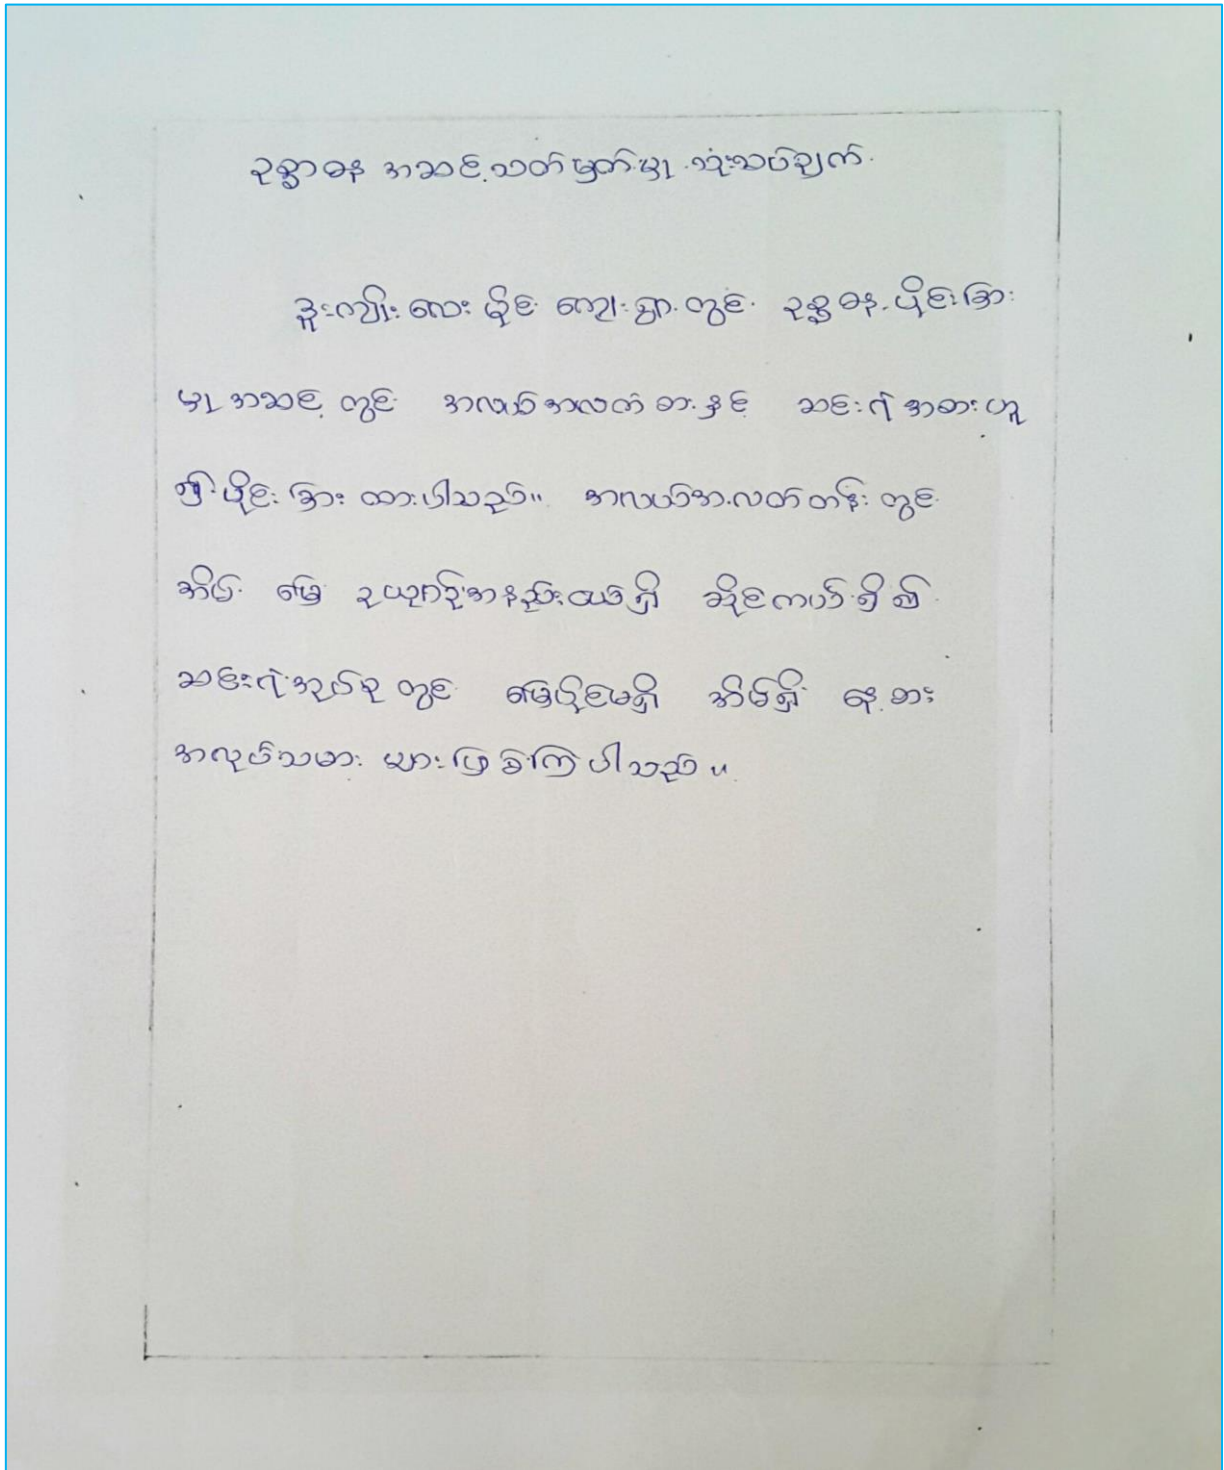 ဥစ္စာဓန အဆင့်သတ်မှတ်မှု သုံးသပ်ချက်
ဒူးကျိုးလေး မိုင် ကျေးရွာ တွင် ဥစ္စဓန ပိုင်းခြား
မှု အဆင့် တွင် အလယ်အလတ်စား နှင့် ဆင်းရဲ အစား ဟူ
၍ ပိုင်းခြား ထားပါသည်။ အလယ်အလတ်တန်း တွင်
အိမ် မြေ ဥယျာဉ်အနည်းငယ်ရှိ ဆိုင်ကယ်ရှိ၍
ဆင်းရဲအုပ်စု တွင် မြေပိုင်မရှိ အိမ်ရှိ နေ့စား
အလုပ်သမား များ ဖြစ်ကြပါသည်။